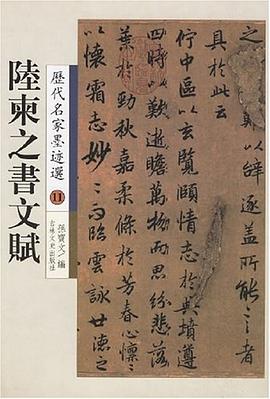 之
難以辭逐蓋所能言者
具於此云
佇中區以玄覽頤情志於典墳遵
四時以歎逝瞻萬物而思紛悲落
葉於勁秋嘉柔條於芳春心懍〻
以懷霜志眇〻而臨雲詠
歷代名家墨迹選 11
孫寶文 編
吉林文史出版社
陸柬之書文賦